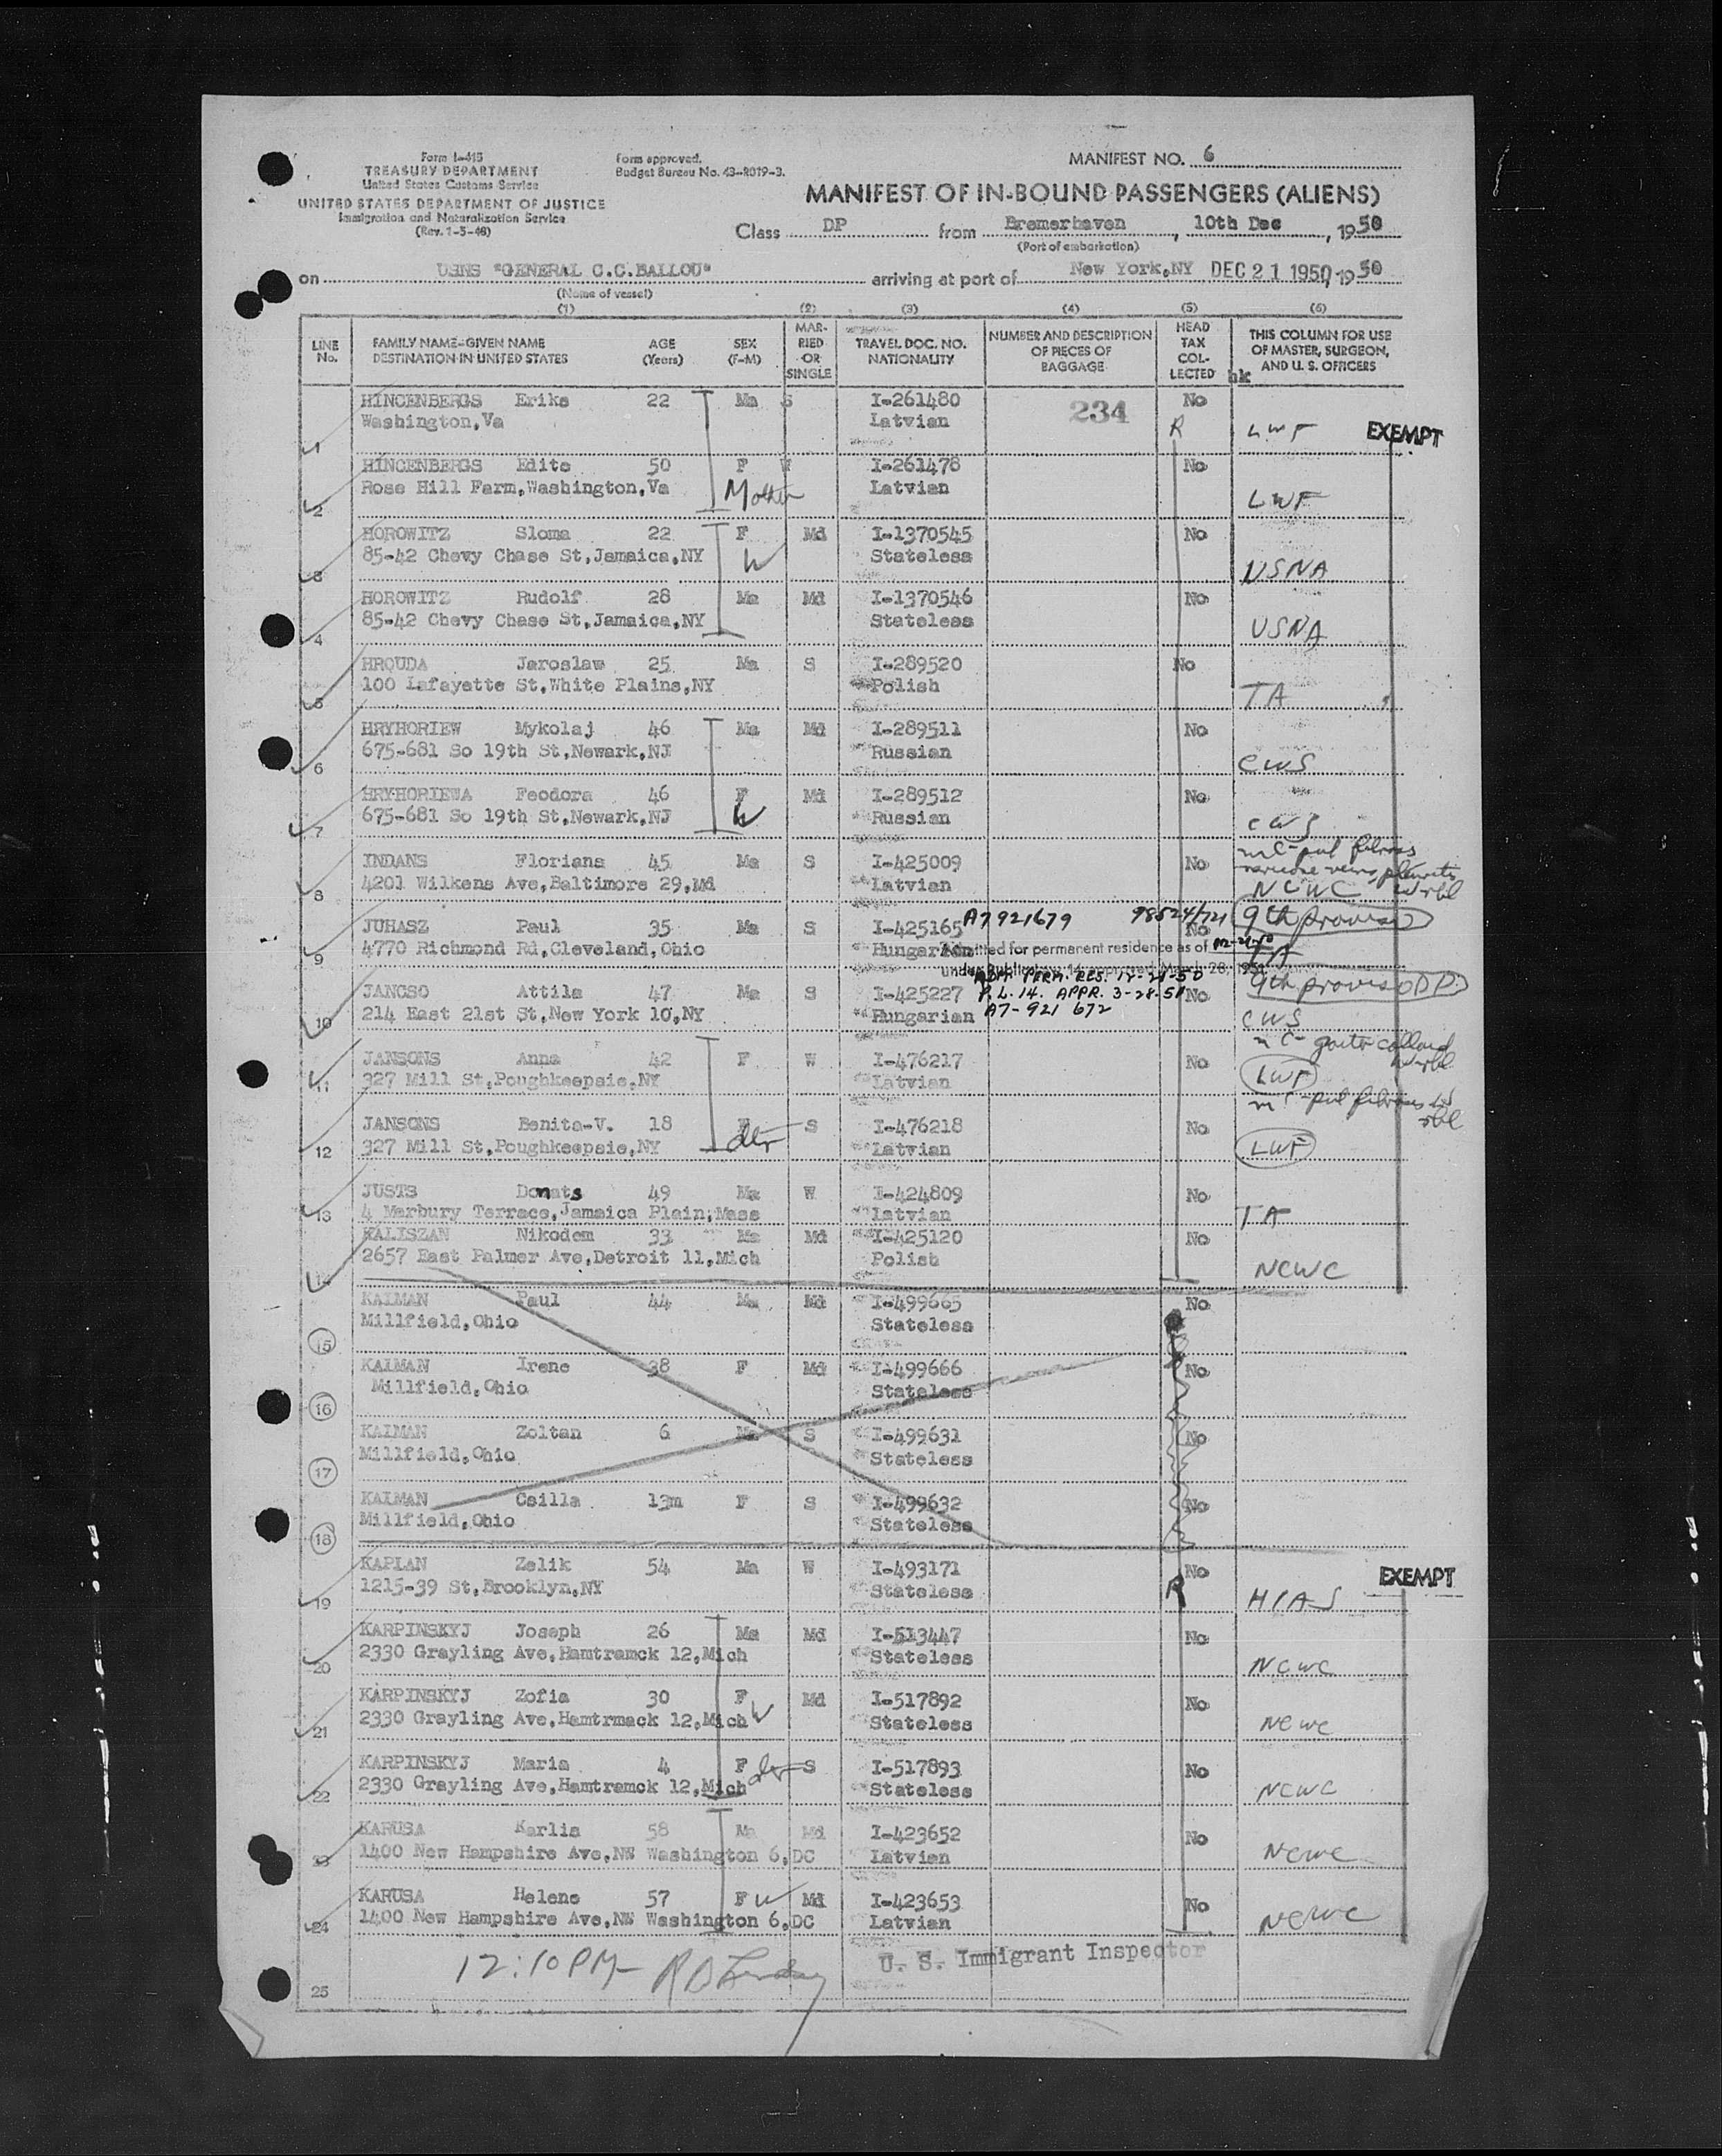 Form I-415
TREASURY DEPARTMENT
United States Customs Service
UNITED STATES DEPARTMENT OF JUSTICE
Immigration and Naturalization Service
(Rev. 1-5-48)
Form approved.
Budget Bureau No. 43-R019-3.
MANIFEST NO. 6
MANIFEST OF IN-BOUND PASSENGERS (ALIENS)
Class DP from Bremerhaven, 10th Dec, 1950
(Port of embarkation)
on USNS "GENERAL C.C.BALLOU" arriving at port of New York,NY DEC 21 1950, 1950
(Name of vessel)
(1) (2) (3) (4) (5) (6)
LINE No. FAMILY NAME-GIVEN NAME DESTINATION IN UNITED STATES AGE (Years) SEX (F-M) MARRIED OR SINGLE TRAVEL DOC. NO. NATIONALITY NUMBER AND DESCRIPTION OF PIECES OF BAGGAGE HEAD TAX COLLECTED THIS COLUMN FOR USE OF MASTER, SURGEON, AND U. S. OFFICERS
hk
HINCENBERGS Eriks 22 Ma S I-261480 234 No
Washington,Va Latvian R LWF EXEMPT
1
HINCENBERGS Edite 50 F W I-261478 No
Rose Hill Farm,Washington,Va Mother Latvian LWF
2
HOROWITZ Sloma 22 F Md I-1370545 No
85-42 Chevy Chase St,Jamaica,NY W Stateless USNA
3
HOROWITZ Rudolf 28 Ma Md I-1370546 No
85-42 Chevy Chase St,Jamaica,NY Stateless USNA
4
HROUDA Jaroslaw 25 Ma S I-289520 No
100 Lafayette St,White Plains,NY Polish TA
5
HRYHORIEW Mykolaj 46 Ma Md I-289511 No
675-681 So 19th St,Newark,NJ Russian CWS
6
HRYHORIEWA Feodora 46 F Md I-289512 No
675-681 So 19th St,Newark,NJ W Russian CWS
7
INDANS Florians 45 Ma S I-425009 No
4201 Wilkens Ave,Baltimore 29,Md Latvian NCWC
8
JUHASZ Paul 35 Ma S I-425165 A7921679 98524/721 No 9th proviso
4770 Richmond Rd,Cleveland,Ohio Hungarian Admitted for permanent residence as of 12-21-50 TA
9 under Public Law 14, approved March 28, 1951
ADM. PERM. RES. 12-21-50
JANCSO Attila 47 Ma S I-425227 P.L. 14. APPR. 3-28-51 No 9th proviso DP
214 East 21st St,New York 10,NY Hungarian A7-921 672 CWS
10
JANSONS Anna 42 F W I-476217 No
327 Mill St,Poughkeepsie,NY Latvian LWF
11
JANSONS Benita-V. 18 F S I-476218 No
327 Mill St,Poughkeepsie,NY dtr Latvian LWF
12
JUSTS Donats 49 Ma W I-424809 No
4 Marbury Terrace,Jamaica Plain,Mass Latvian TA
13
KALISZAN Nikodem 33 Ma Md I-425120 No
2657 East Palmer Ave,Detroit 11,Mich Polish NCWC
14
KALMAN Paul 44 Ma Md I-499665 No
Millfield,Ohio Stateless
15
KALMAN Irene 38 F Md I-499666 No
Millfield,Ohio Stateless
16
KALMAN Zoltan 6 Ma S I-499631 No
Millfield,Ohio Stateless
17
KALMAN Csilla 13m F S I-499632 No
Millfield,Ohio Stateless
18
KAPLAN Zelik 54 Ma W I-493171 No EXEMPT
1215-39 St,Brooklyn,NY Stateless R HIAS
19
KARPINSKYJ Joseph 26 Ma Md I-513447 No
2330 Grayling Ave,Hamtramck 12,Mich Stateless NCWC
20
KARPINSKYJ Zofia 30 F Md I-517892 No
2330 Grayling Ave,Hamtrmack 12,Mich W Stateless NCWC
21
KARPINSKYJ Maria 4 F dtr S I-517893 No
2330 Grayling Ave,Hamtramck 12,Mich Stateless NCWC
22
KARUSA Karlis 58 Ma Md I-423652 No
1400 New Hampshire Ave,NW Washington 6,DC Latvian NCWC
23
KARUSA Helene 57 F W Md I-423653 No
1400 New Hampshire Ave,NW Washington 6,DC Latvian NCWC
24
12:10 PM U. S. Immigrant Inspector
25